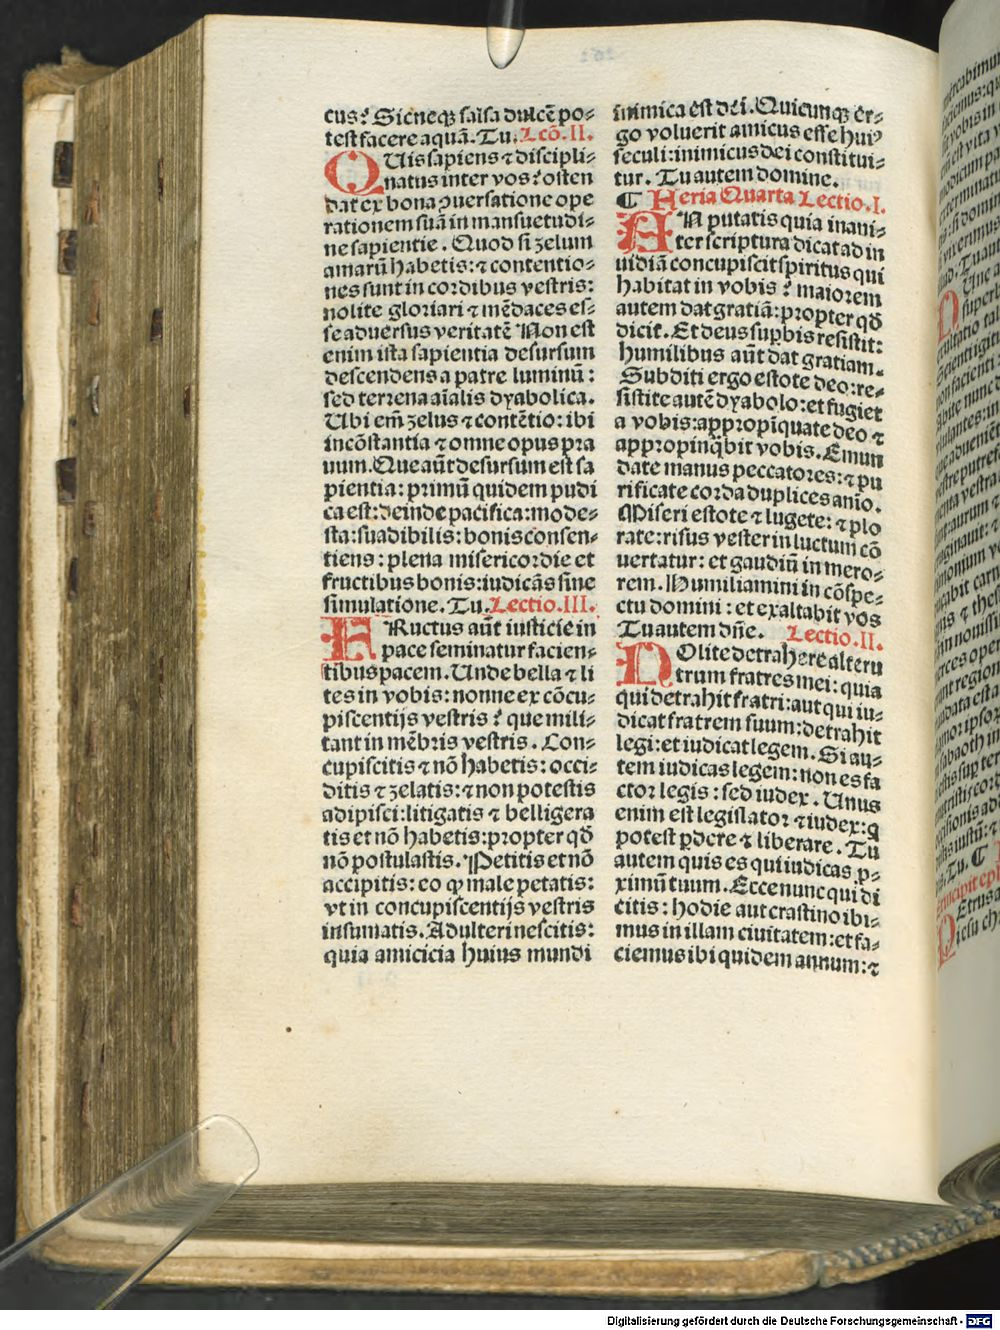 cus? Sic neqꝫ salsa dulcē po⸗
test facere aquā. Tu. Lcō. II.
QUis sapiens ⁊ discipli⸗
natus inter vos? osten
dat ex bona ꝯuersatione ope
rationem suā in mansuetudi⸗
ne sapientie. Quod si zelum
amarū habetis: ⁊ contentio⸗
nes sunt in cordibus vestris:
nolite gloriari ⁊ mēdaces es⸗
se aduersus veritatē Non est
enim ista sapientia desursum
descendens a patre luminū:
sed terrena aīalis dyabolica.
Ubi em̄ zelus ⁊ contētio: ibi
incōstantia ⁊ omne opus pra
uum. Que aūt desursum est sa
pientia: primū quidem pudi
ca est: deinde pacifica: mode⸗
sta: suadibilis: bonis consen⸗
tiens: plena misericordie et
fructibus bonis: iudicās sine
simulatione. Tu. Lectio. III.
FRuctus aūt iusticie in
pace seminatur facien⸗
tibus pacem. Unde bella ⁊ li
tes in vobis: nonne ex cōcu⸗
piscentijs vestris? que mili⸗
tant in mēbris vestris. Con⸗
cupiscitis ⁊ nō habetis: occi⸗
ditis ⁊ zelatis: ⁊ non potestis
adipisci: litigatis ⁊ belligera
tis et nō habetis: propter qđ
nō postulastis. Petitis et nō
accipitis: eo ꝙ male petatis:
vt in concupiscentijs vestris
insumatis. Adulteri nescitis:
quia amicicia huius mundi
inimica est dei. Quicunqꝫ er⸗
go voluerit amicus esse huiꝰ
seculi: inimicus dei constitui⸗
tur. Tu autem domine.
¶ Feria Quarta Lectio. I.
AN putatis quia inani⸗
ter scriptura dicat ad in
uidiā concupiscit spiritus qui
habitat in vobis? maiorem
autem dat gratiā: propter qđ
dicit. Et deus suꝑbis resistit:
humilibus aūt dat gratiam.
Subditi ergo estote deo: re⸗
sistite autē dyabolo: et fugiet
a vobis: appropīquate deo ⁊
appropinq̄bit vobis. Emun
date manus peccatores: ⁊ pu
rificate corda duplices anīo.
Miseri estote ⁊ lugete: ⁊ plo
rate: risus vester in luctum cō
uertatur: et gaudiū in mero⸗
rem. Humiliamini in cōspe⸗
ctu domini: et exaltabit vos
Tu autem dn̄e. Lectio. II.
NOlite detrahere alteru
trum fratres mei: quia
qui detrahit fratri: aut qui iu⸗
dicat fratrem suum: detrahit
legi: et iudicat legem. Si au⸗
tem iudicas legem: non es fa
ctor legis: sed iudex. Unus
enim est legislator ⁊ iudex: q
potest ꝑdere ⁊ liberare. Tu
autem quis es qui iudicas ꝓ⸗
ximū tuum. Ecce nunc qui di
citis: hodie aut crastino ibi⸗
mus in illam ciuitatem: et fa⸗
ciemus ibi quidem annum: ⁊
Digitalisierung gefördert durch die Deutsche Forschungsgemeinschaft - DFG